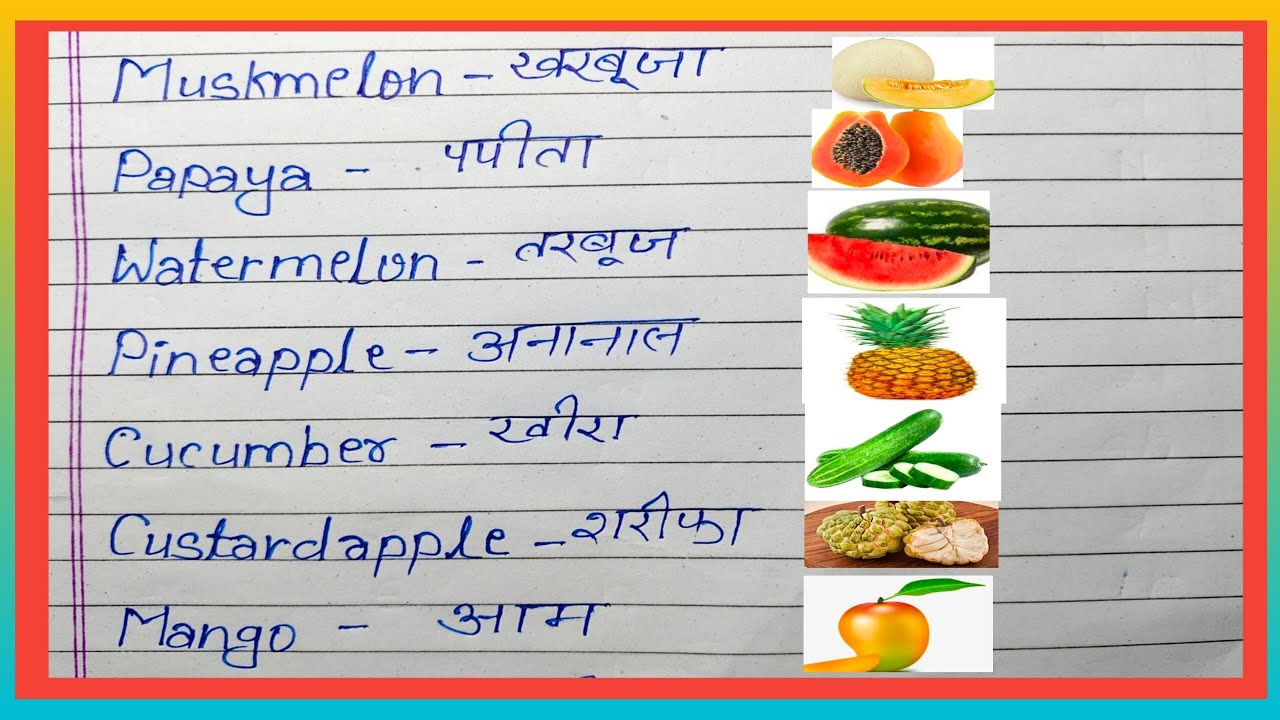 Muskmelon - खरबूजा
Papaya - पपीता
Watermelon - तरबूज
Pineapple - अनानास
Cucumber - खीरा
Custardapple - शरीफा
Mango - आम